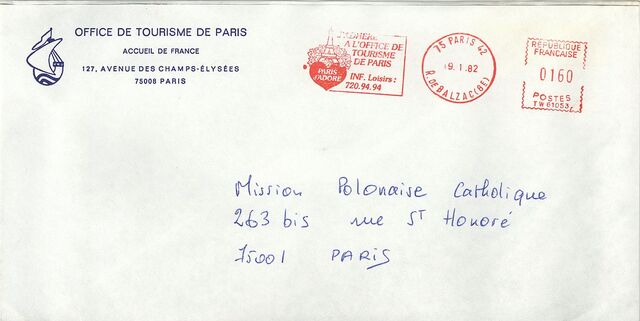 OFFICE DE TOURISME DE PARIS
ACCUEIL DE FRANCE
127, AVENUE DES CHAMPS-ÉLYSÉES
75008 PARIS
J'ADHÈRE
A L'OFFICE DE
TOURISME
DE PARIS
PARIS
J'ADORE
INF. Loisirs :
720.94.94
75 PARIS 42
19.1.82
R. DE BALZAC (8E)
RÉPUBLIQUE
FRANÇAISE
0160
POSTES
TW 61053
Mission Polonaise Catholique
263 bis rue ST Honoré
75001 PARIS